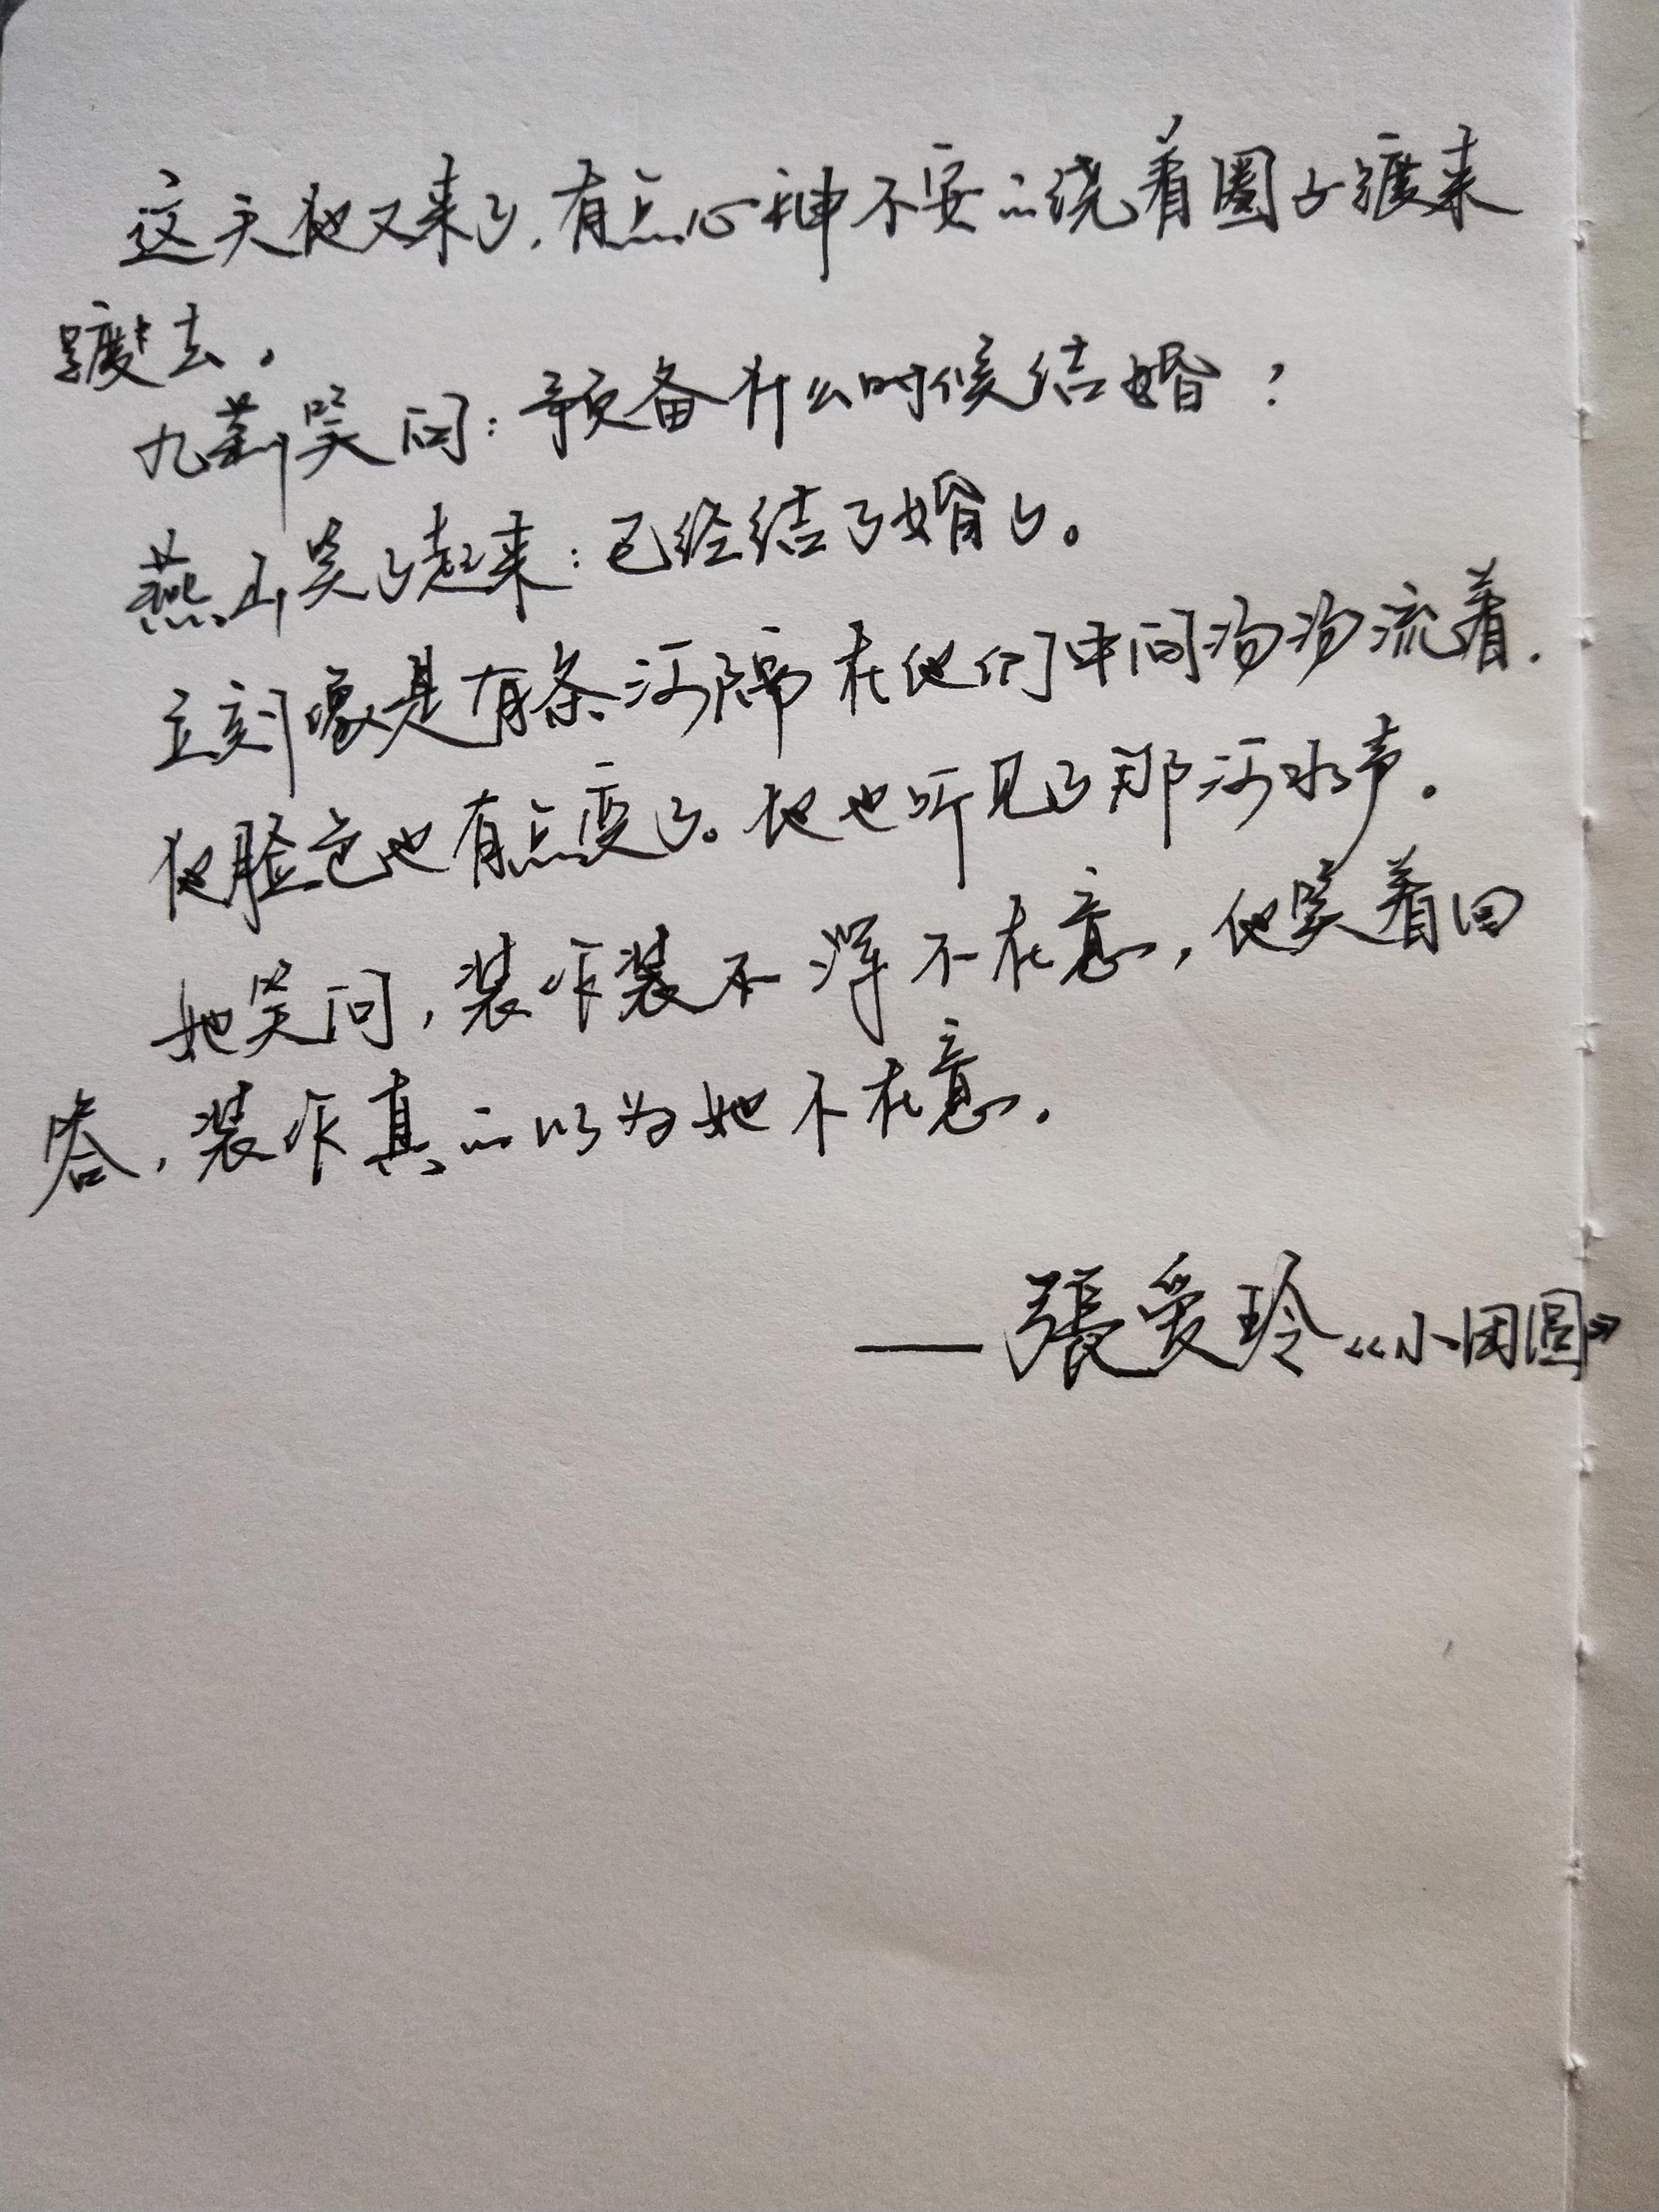 这天他又来了，有点心神不安的绕着圈子踱来
踱去。
九莉笑问：预备什么时候结婚？
燕山笑了起来：已经结了婚了。
立刻像是有条河隔在他们中间汤汤流着.
他脸色也有点变了。他也听见了那河水声。
她笑问，装作装不浑不在意，他笑着回
答，装作真的以为她不在意.
——張爱玲《小团圆》